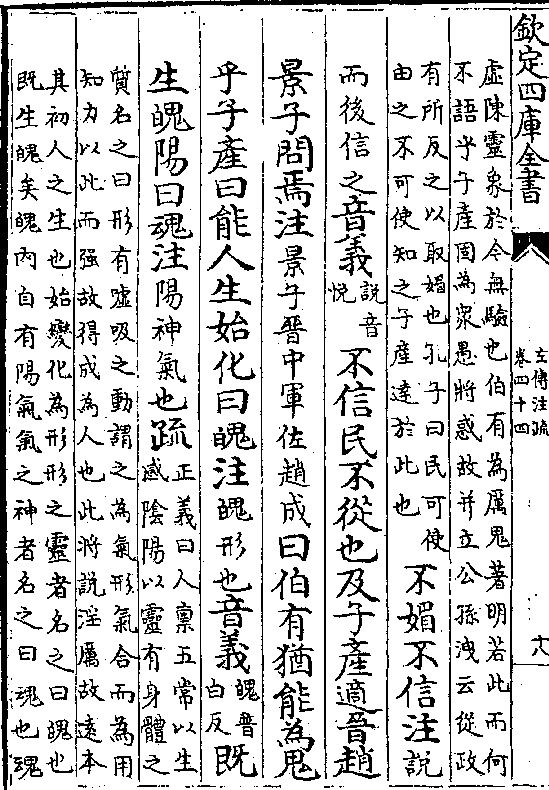 欽定四庫全書
左傳注疏
卷四十四
十八
虛陳靈象於今無驗也伯有為厲鬼著明若此而何
不語乎子產固為眾愚將惑故并立公孫洩云從政
有所反之以取媚也孔子曰民可使
由之不可使知之子產達於此也
不媚不信注說
而後信之音義說音
悅
不信民不從也及子產適晉趙
景子問焉注景子晉中軍佐趙成曰伯有猶能為鬼
乎子產曰能人生始化曰魄注魄形也音義魄普
白反
既
生魄陽曰魂注陽神氣也疏正義曰人稟五常以生
感陰陽以靈有身體之
質名之曰形有噓吸之動謂之為氣形氣合而為用
知力以此而强故得成為人也此將說淫厲故遠本
其初人之生也始變化為形形之靈者名之曰魄也
既生魄矣魄內自有陽氣氣之神者名之曰魂也魂